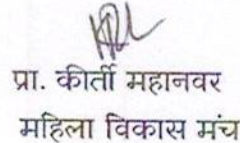 प्रा. कीर्ती महानवर
महिला विकास मंच